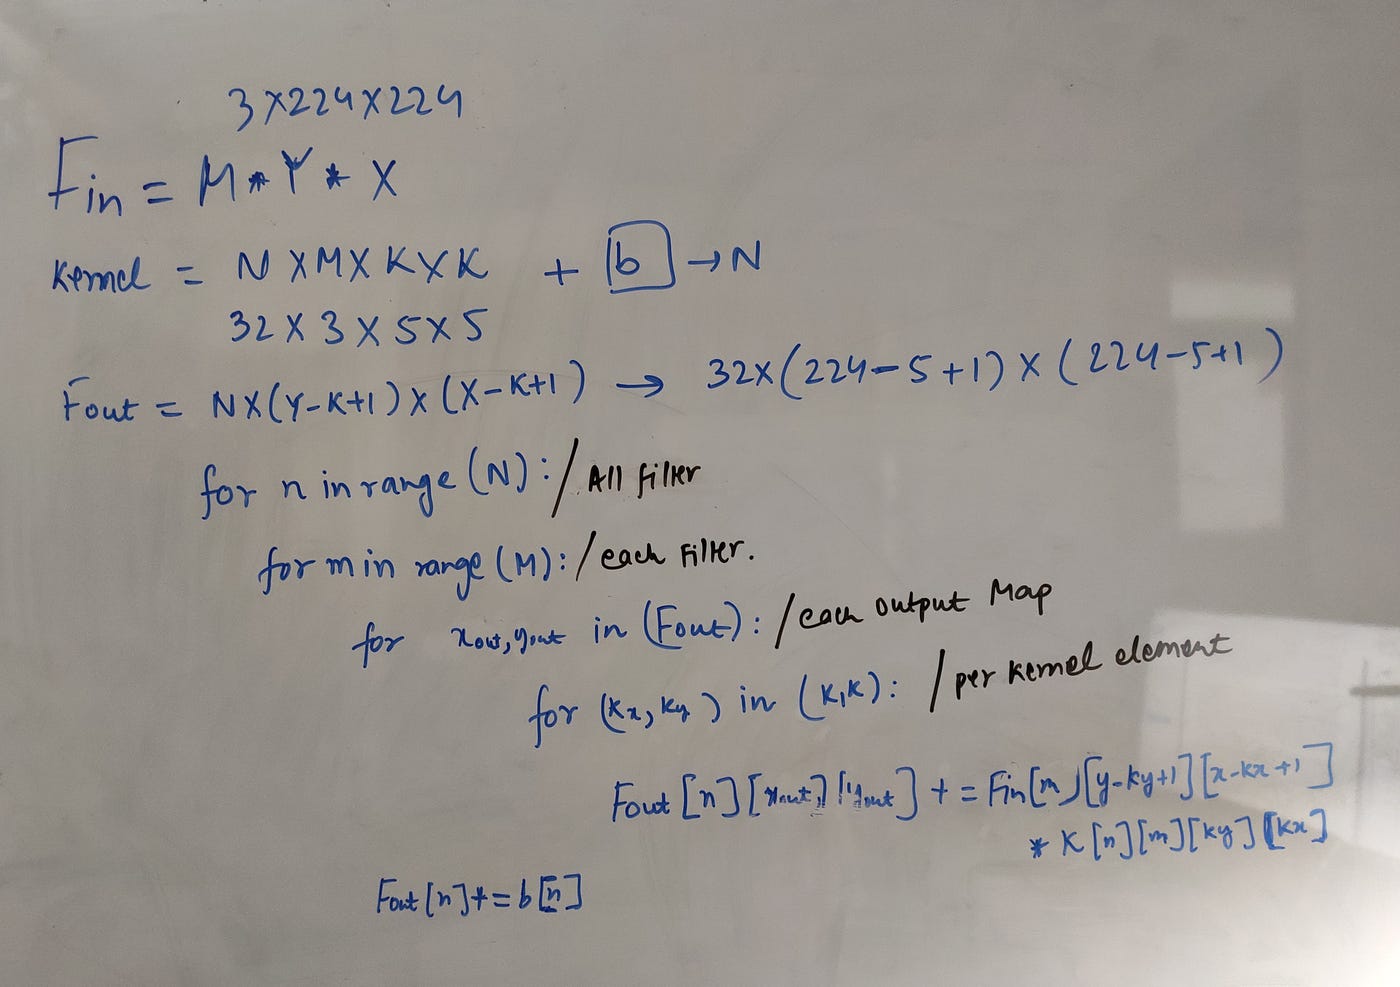 3 X 224 X 224
Fin = M * Y * X
Kernel = N X M X K X K + b → N
32 X 3 X 5 X 5
Fout = N X (Y-K+1) X (X-K+1) → 32 X (224-5+1) X (224-5+1)
for n in range (N): / All filter
for m in range (M): / each Filter.
for xout, yout in (Fout): / each output Map
for (Kx, Ky) in (K,K): / per kernel element
Fout [n] [xout] [yout] += Fin[m][y-ky+1][x-kx+1]
* K [n][m][ky][kx]
Fout [n] += b [n]